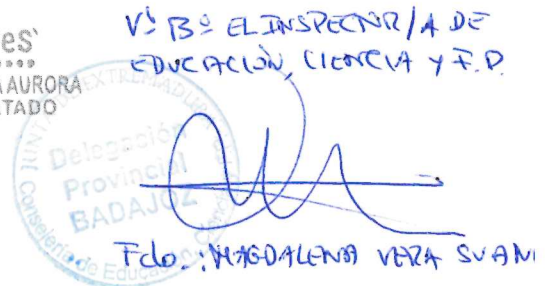 es
AURORA
TADO
Vº Bº EL INSPECTOR/A DE
EDUCACIÓN, CIENCIA Y F.P.
JUNTA DE EXTREMADURA
Delegación
Provincial
BADAJOZ
Consejería de Educación
Fdo.: MAGDALENA VERA SUAN